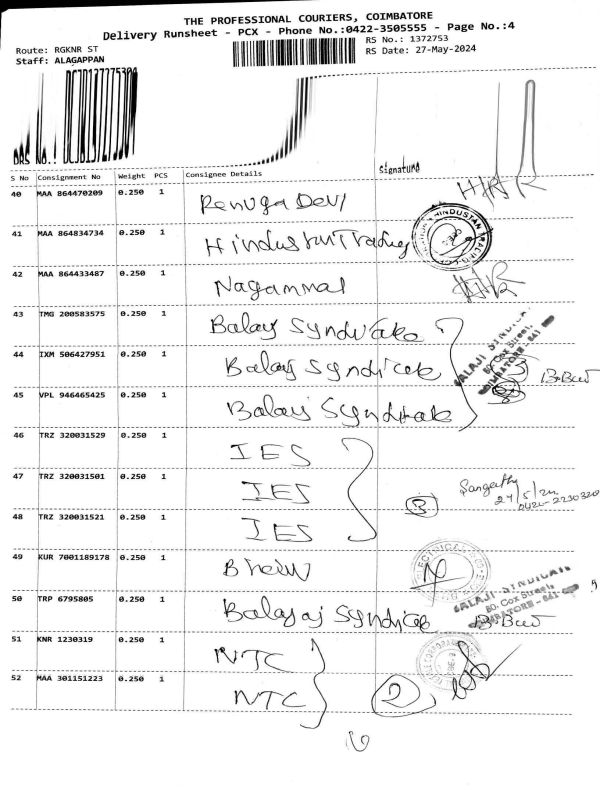 THE PROFESSIONAL COURIERS, COIMBATORE
Delivery Runsheet - PCX - Phone No.:0422-3505555 - Page No.:4
Route: RGKNR ST
RS No.: 1372753
Staff: ALAGAPPAN
RS Date: 27-May-2024
DRS No.:
S No Consignment No Weight PCS Consignee Details Signature
40 MAA 864470209 0.250 1 Renuga Devi
41 MAA 864834734 0.250 1 Hindustan Trading
42 MAA 864433487 0.250 1 Nagammal
43 TMG 200583575 1 0.250 Balaji Syndicate
44 IXM 506427951 0.250 1 Balaji Syndicate
BALAJI SYNDICATE
80, Cox Street,
COIMBATORE - 641
45 VPL 946465425 0.250 1 Balaji Syndicate
46 TRZ 320031529 0.250 1 IES
47 TRZ 320031501 0.250 1 IES
3 Sangeetha
27/5/24
48 TRZ 320031521 0.250 1 IES
49 KUR 7001189178 0.250 1
50 TRP 6795805 0.250 1 Balaji Syndicate
BALAJI SYNDICATE
80, Cox Street,
COIMBATORE - 641
51 KNR 1230319 0.250 1 NTC
52 MAA 301151223 0.250 1 NTC 2